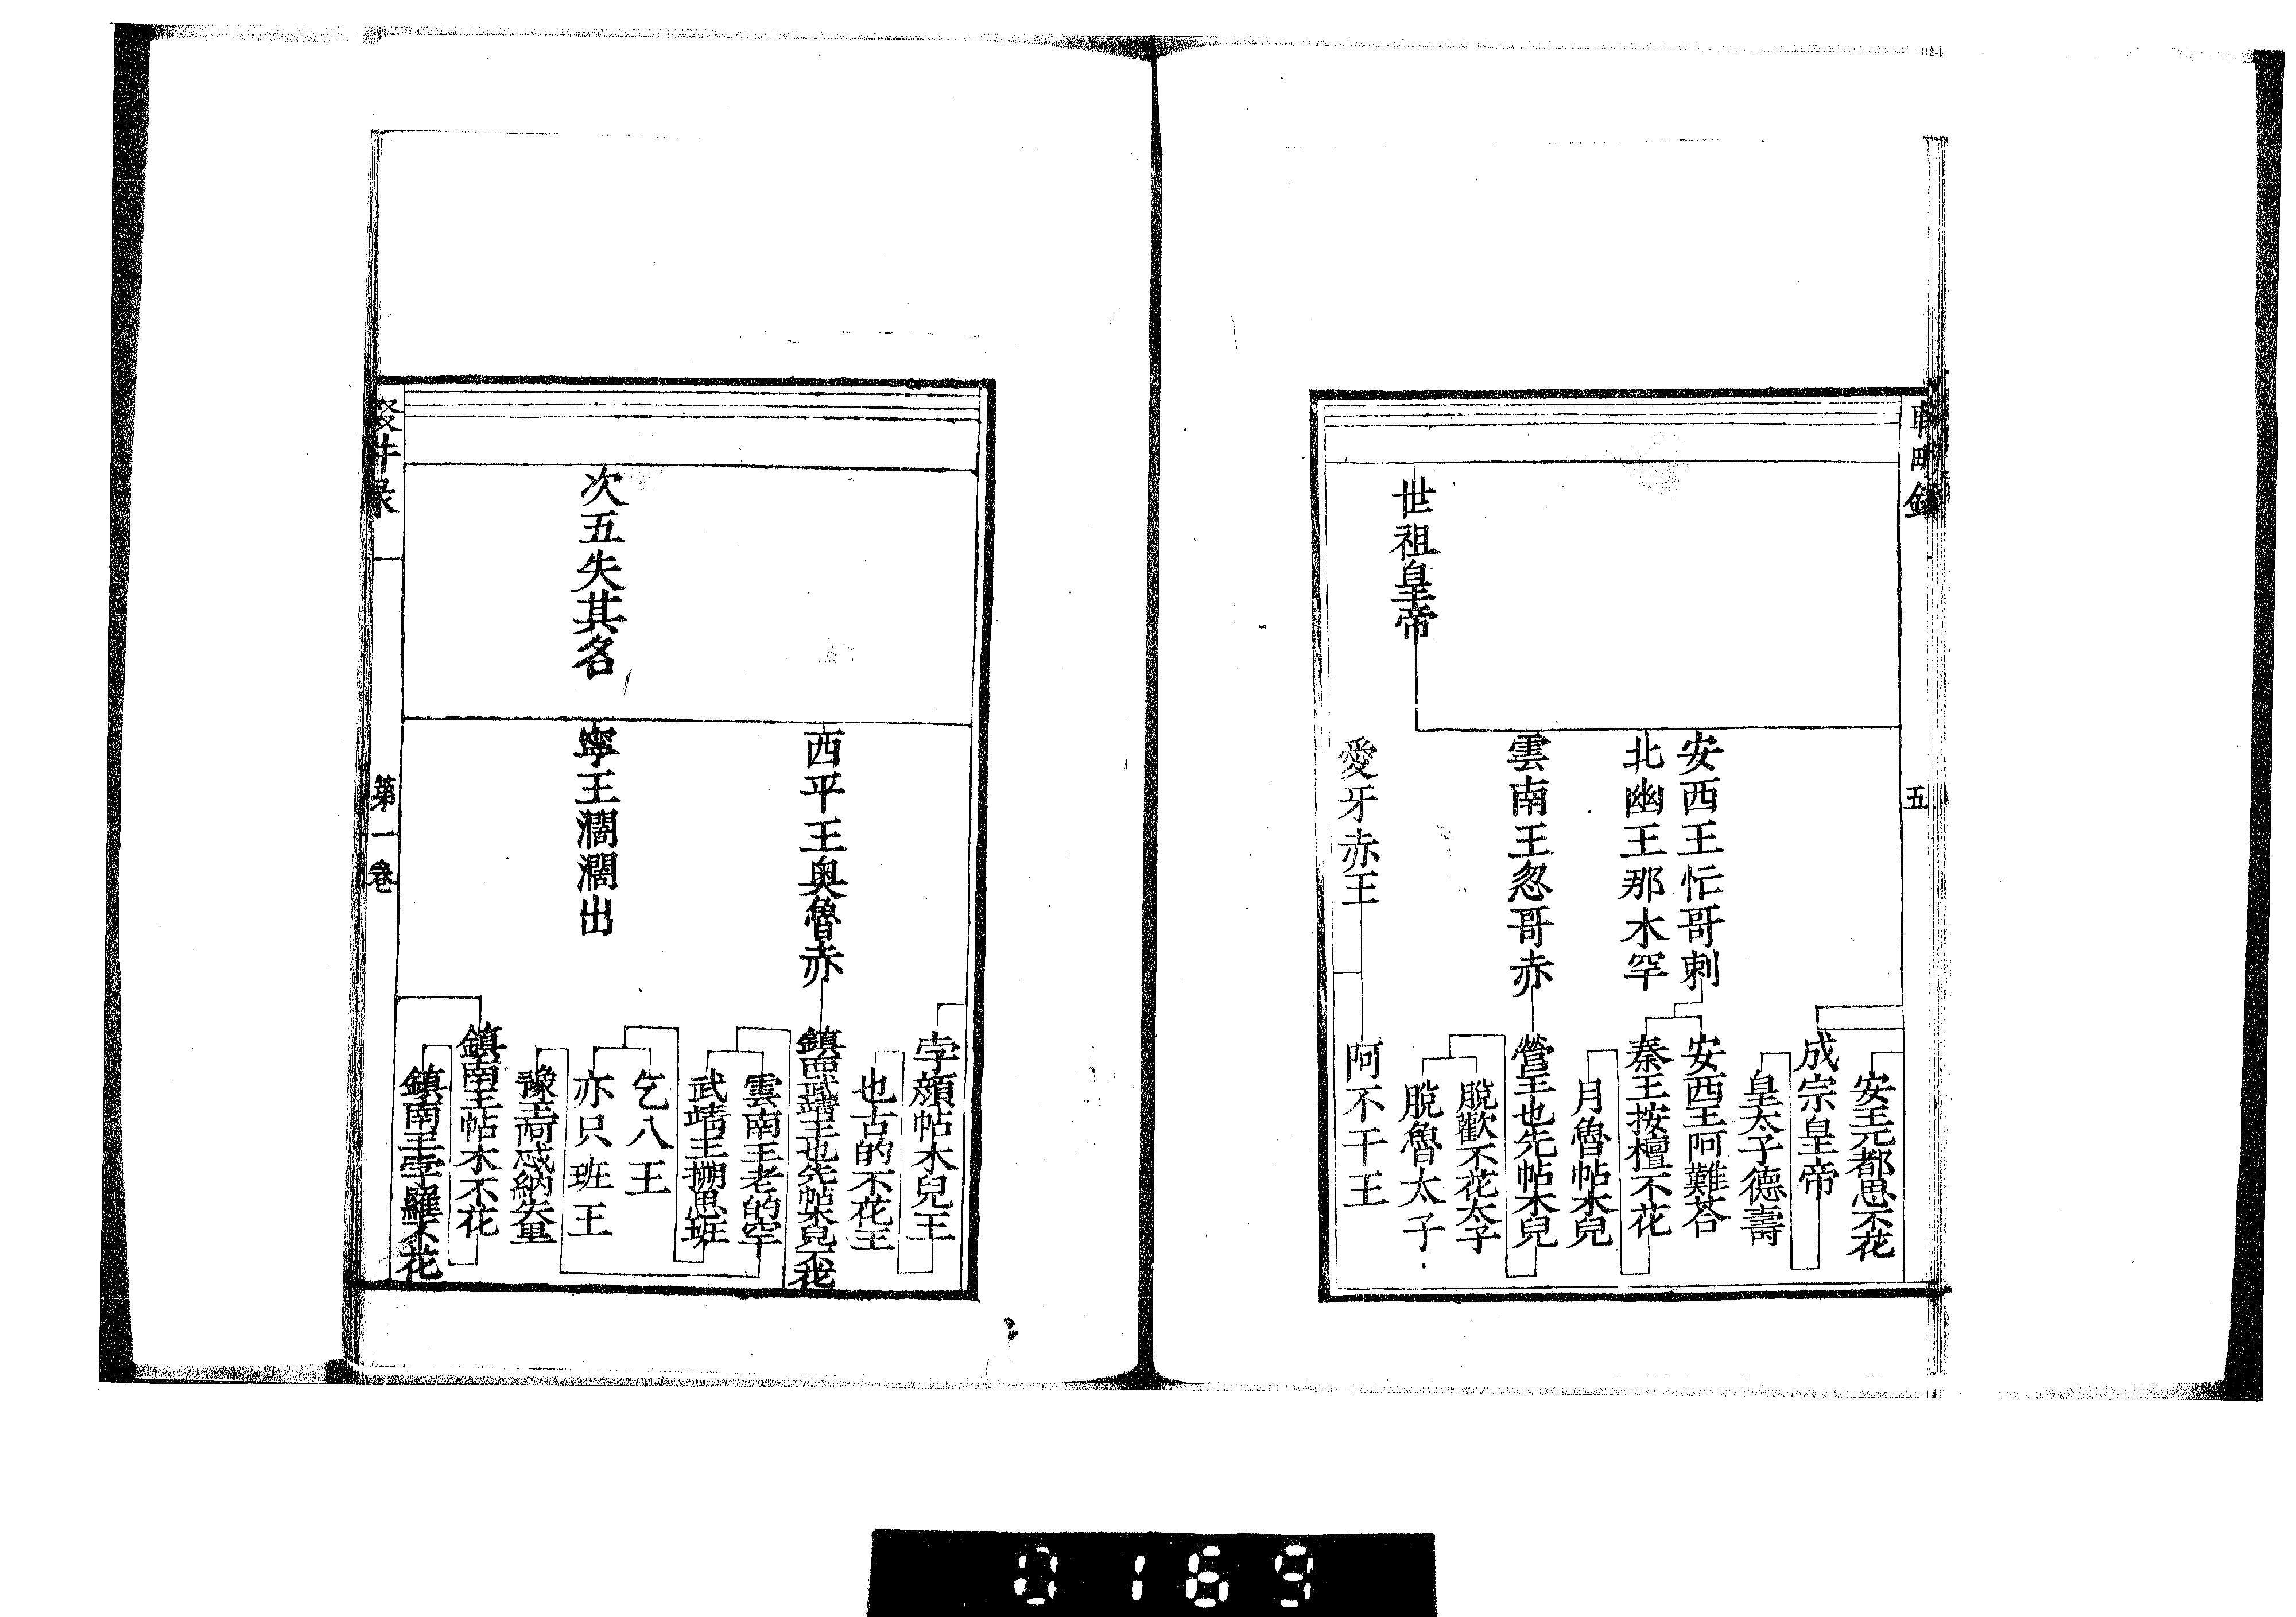 五
安王兀都思不花
成宗皇帝
皇太子德壽
安西王忙哥剌
安西王阿難荅
北幽王那木罕
秦王按檀不花
月魯帖木兒
雲南王忽哥赤
營王也先帖木兒
脫歡不花太子
脫魯太子
世祖皇帝
愛牙赤王
阿不干王
孛顏帖木兒王
也古的不花王
西平王奥魯赤
鎮西武靖王也先帖木兒不花
雲南王老的罕
武靖王搠思班
乞八王
亦只班王
次五失其名
寧王濶濶出
鎮南王帖木不花
鎮南王孛羅不花
第一卷
0169